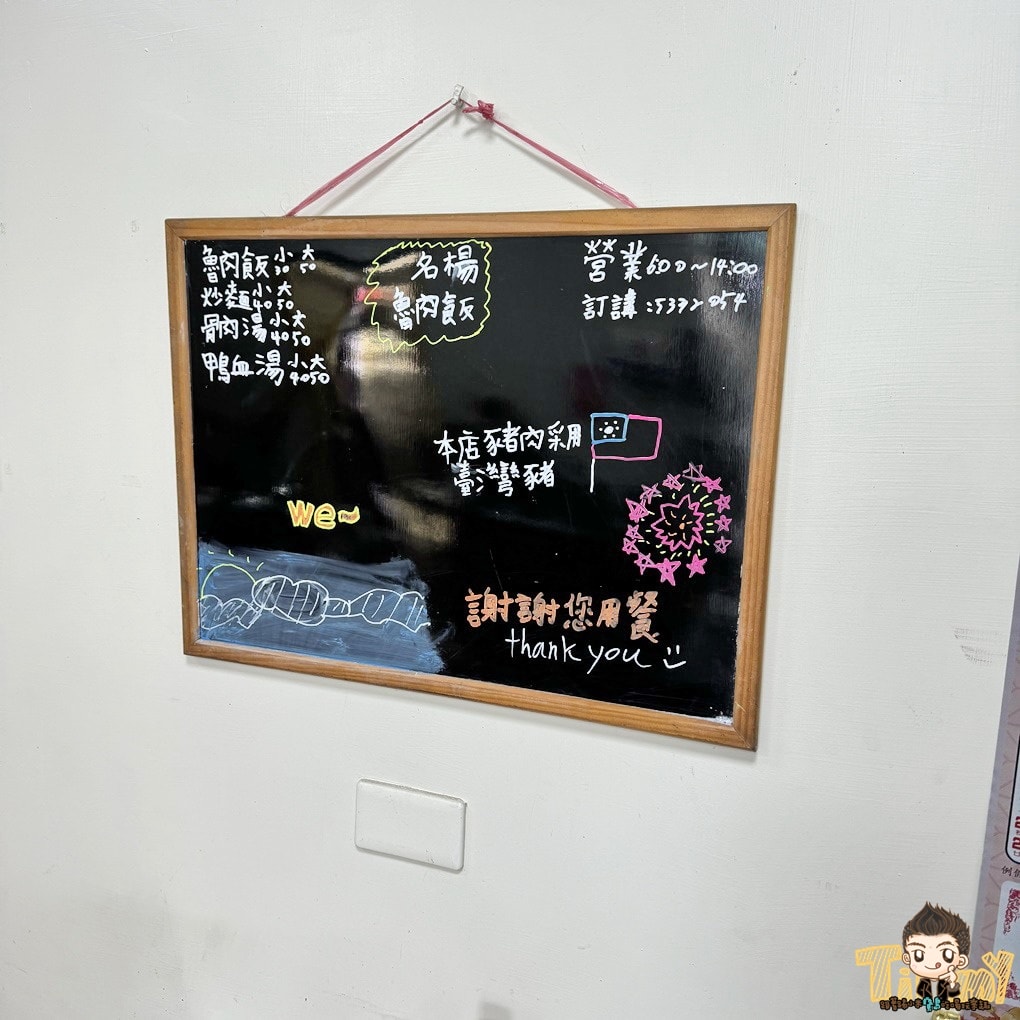 魯肉飯 小30 大50
炒麵 小40 大50
骨肉湯 小40 大50
鴨血湯 小40 大50
名楊
魯肉飯
營業 6:00~14:00
訂講:5372054
本店豬肉采用
臺灣豬
we~
謝謝您用餐
thank you
Timmy